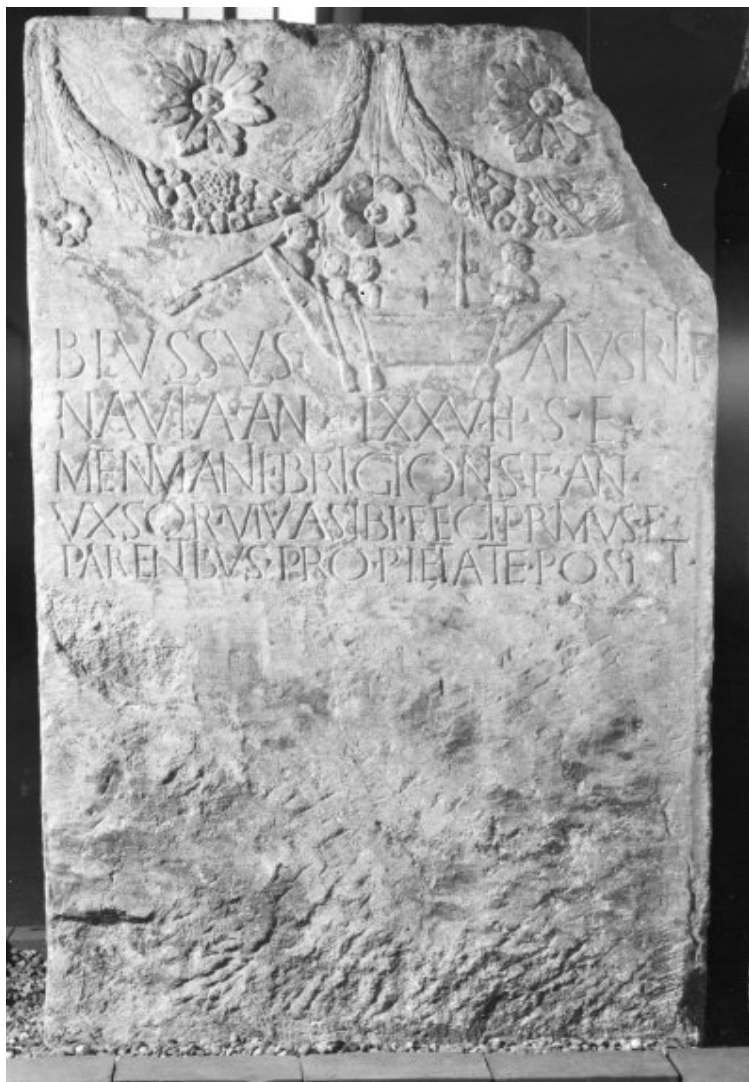 BLVSSVS ATVSIRI·F
NAVTA·AN·LXXV·H·S·E·
MENIMANI·BRIGIONIS·F·AN
VXSOR·VIVA·SIBI·FECIT·PRIMVS·F
PARENTIBVS·PRO·PIETATE·POSIT·